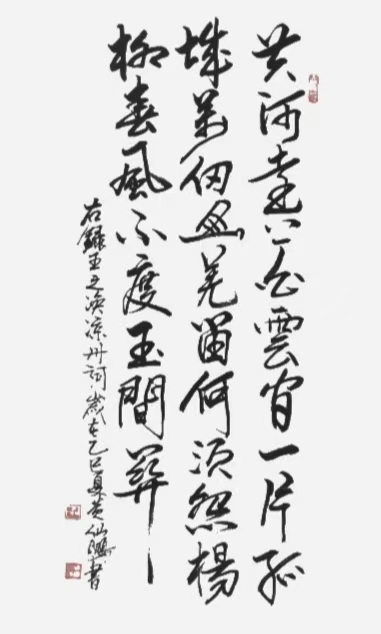 黄河遠上白雲間一片孤
城萬仞山羌笛何須怨楊
柳春風不度玉門關
右錄王之渙涼州詞歲在乙巳夏黄仙書